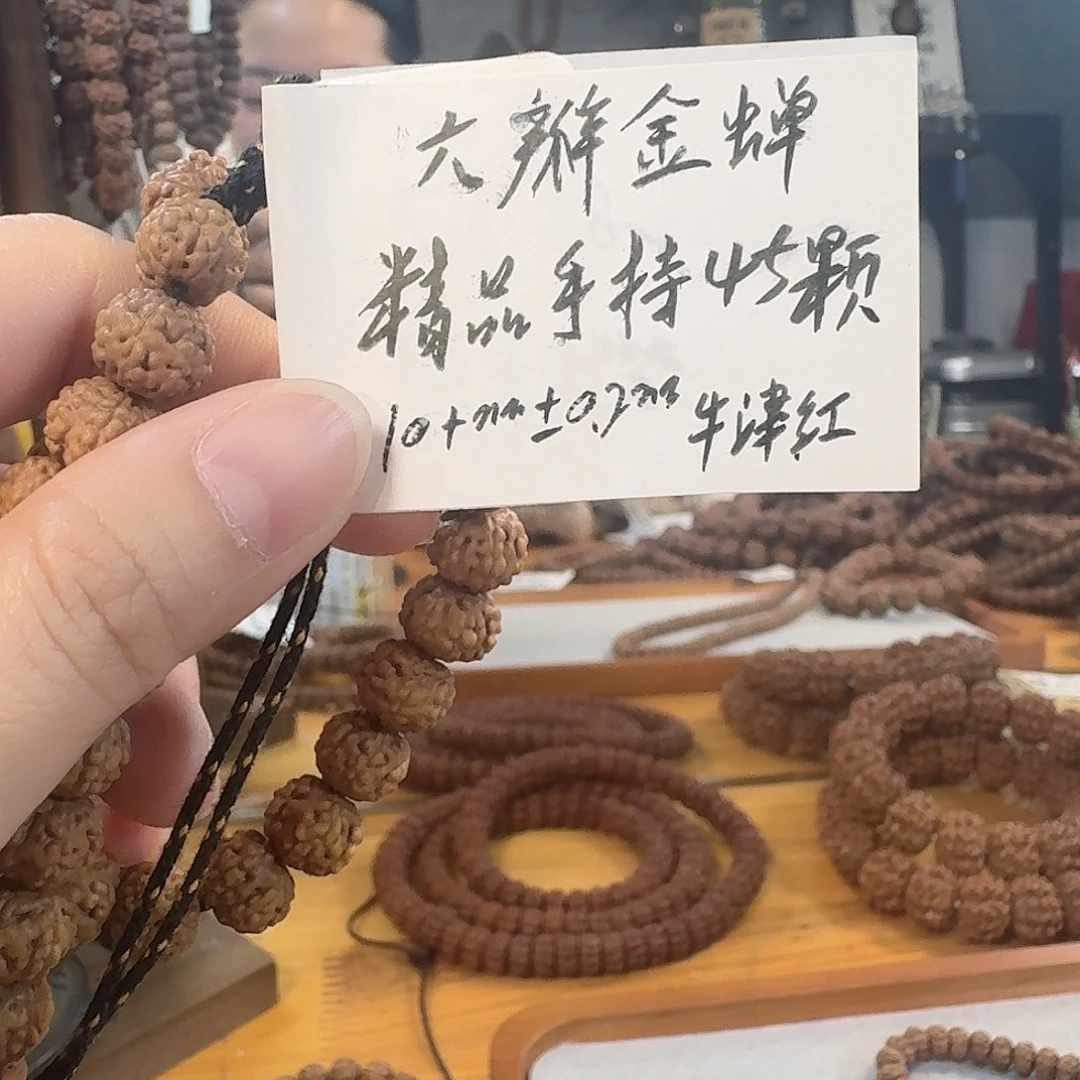 六瓣金蝉
精品手持45颗
10+mm±0.2mm 牛津红